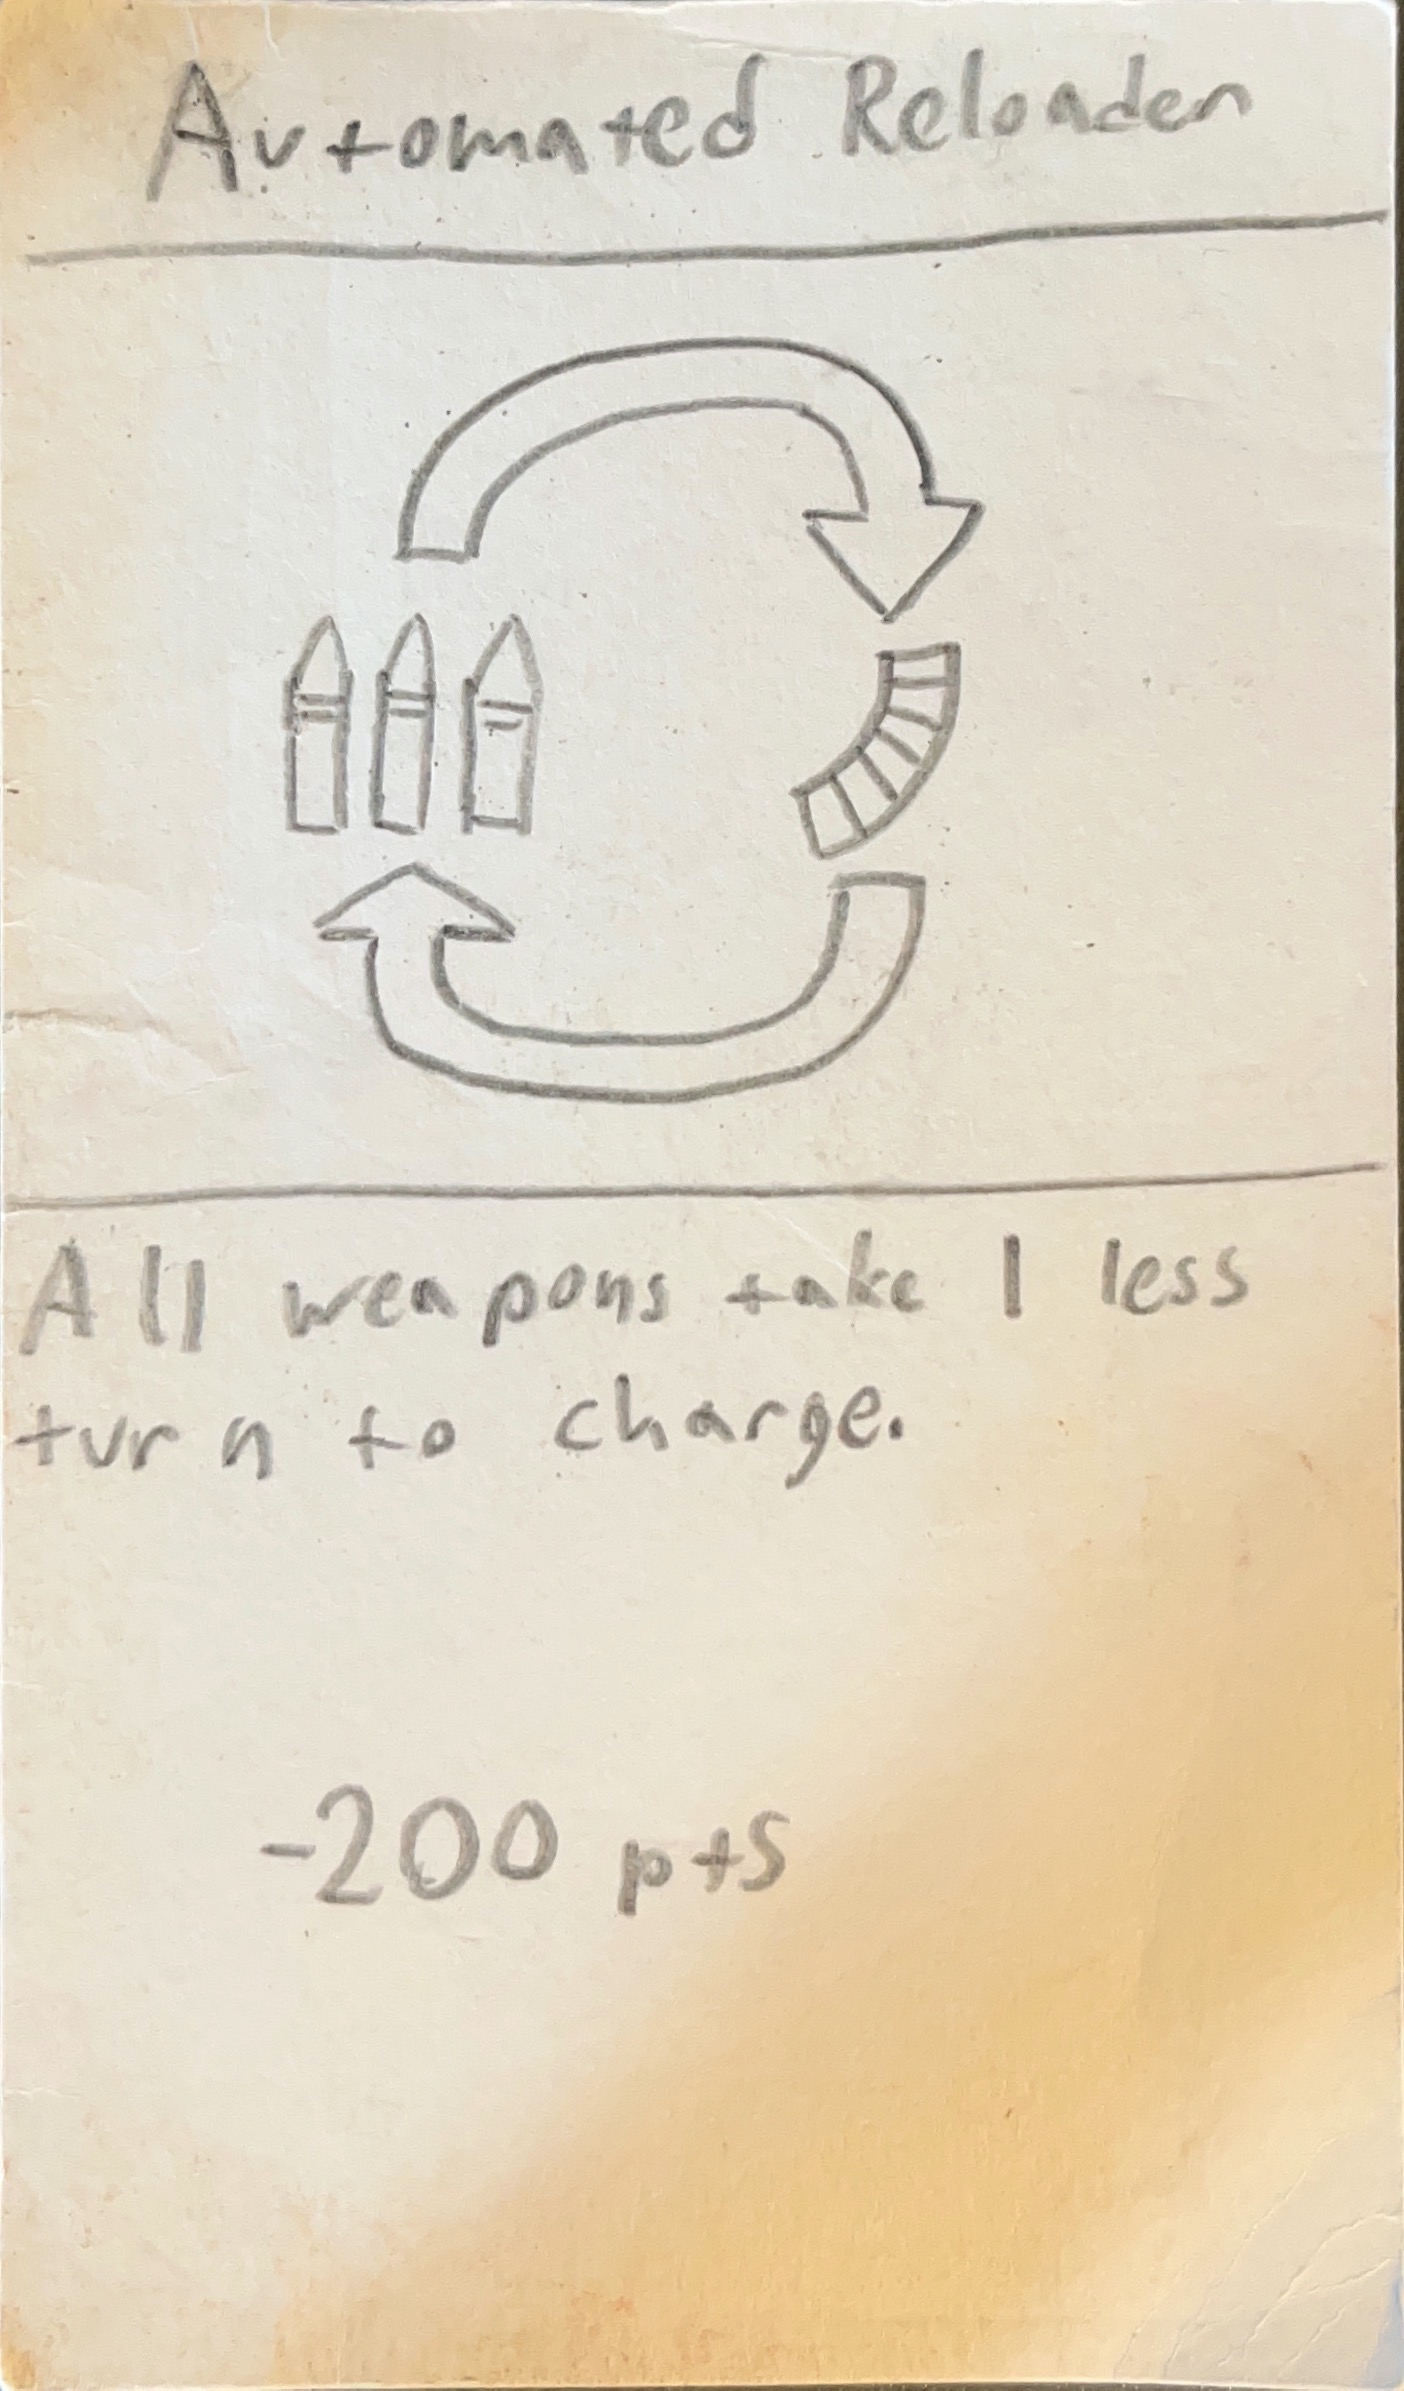 Automated Reloader
All weapons take 1 less
turn to charge.
-200 pts